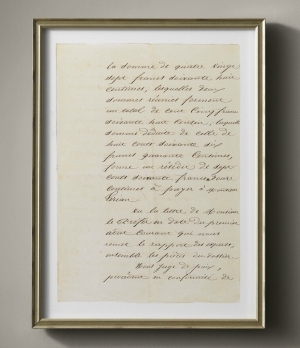 la somme de quatre vingt
sept francs soixante huit
centimes, lesquelles deux
sommes réunies forment
un total de cent cinq francs
soixante huit centimes, laquelle
somme déduite de celle de
huit cents soixante dix
francs quarante centimes,
forme un résidu de sept
cents soixante francs
centimes à payer à Monsieur
Vu la lettre de Monsieur
le en date du premier
août courant qui nous
remet le rapport des experts,
ensemble les pièces du dossier
Nous juge de paix,
procédant en conformité de